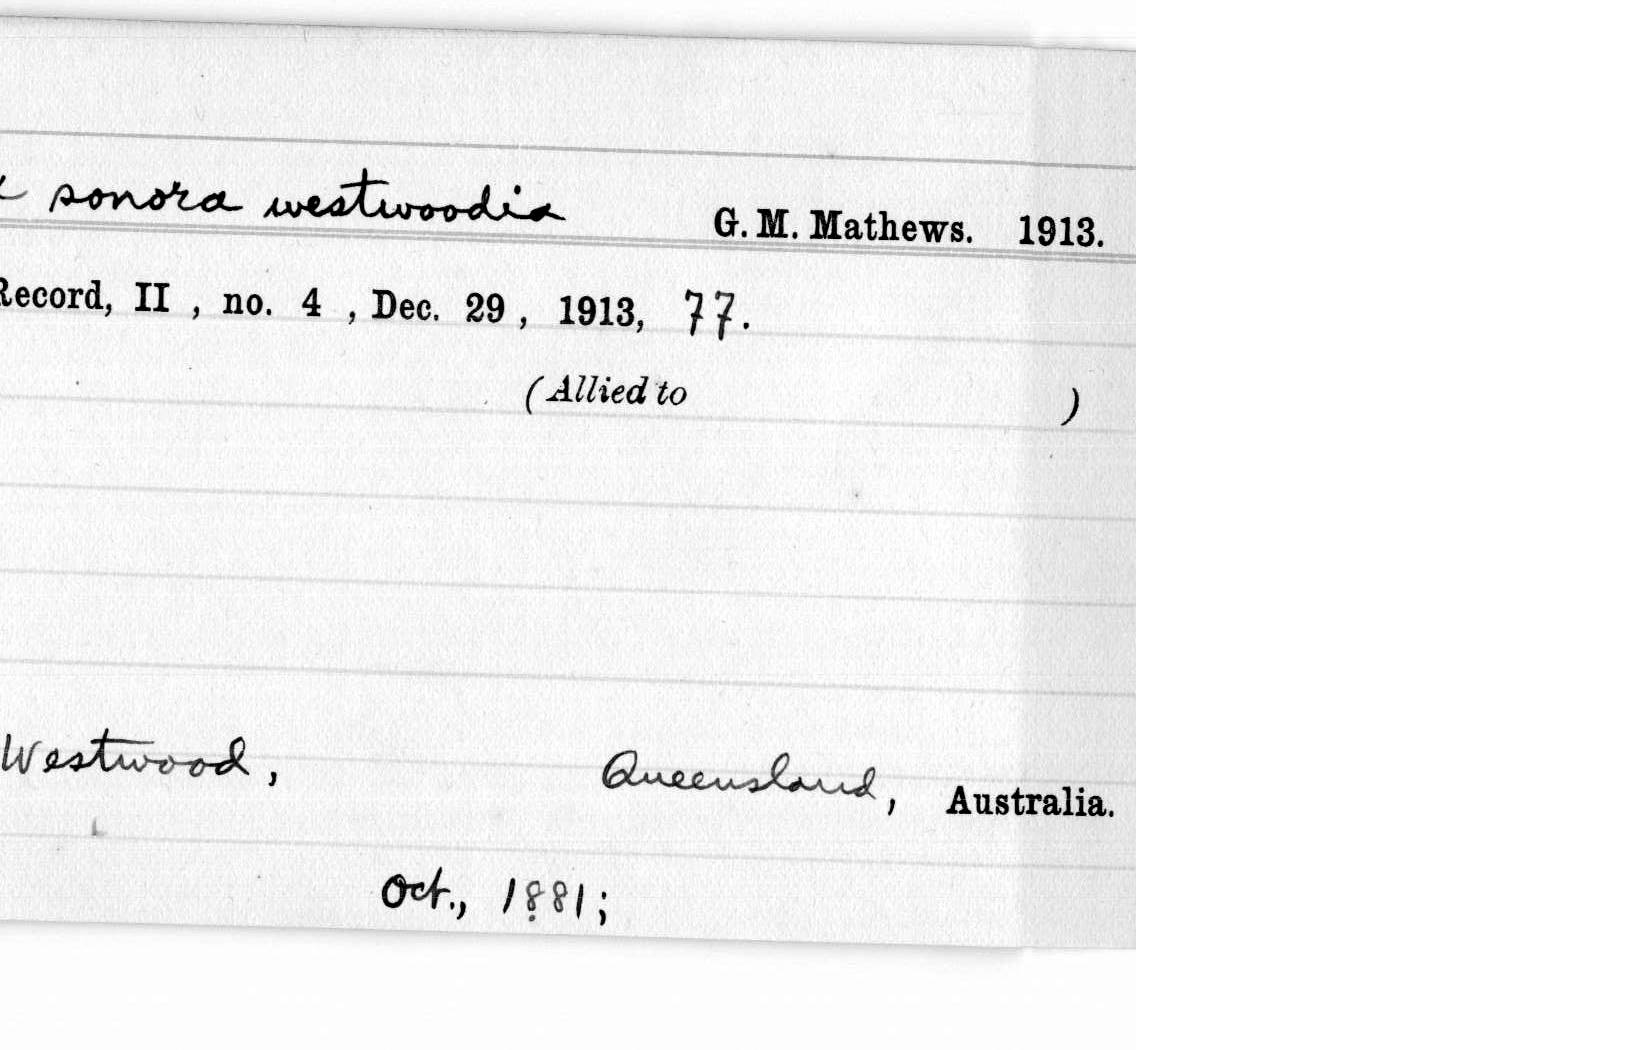 sonora westwoodia G. M. Mathews. 1913.
Record, II , no. 4 , Dec. 29 , 1913, 77.
(Allied to )
Westwood, Queensland, Australia.
Oct., 1881;